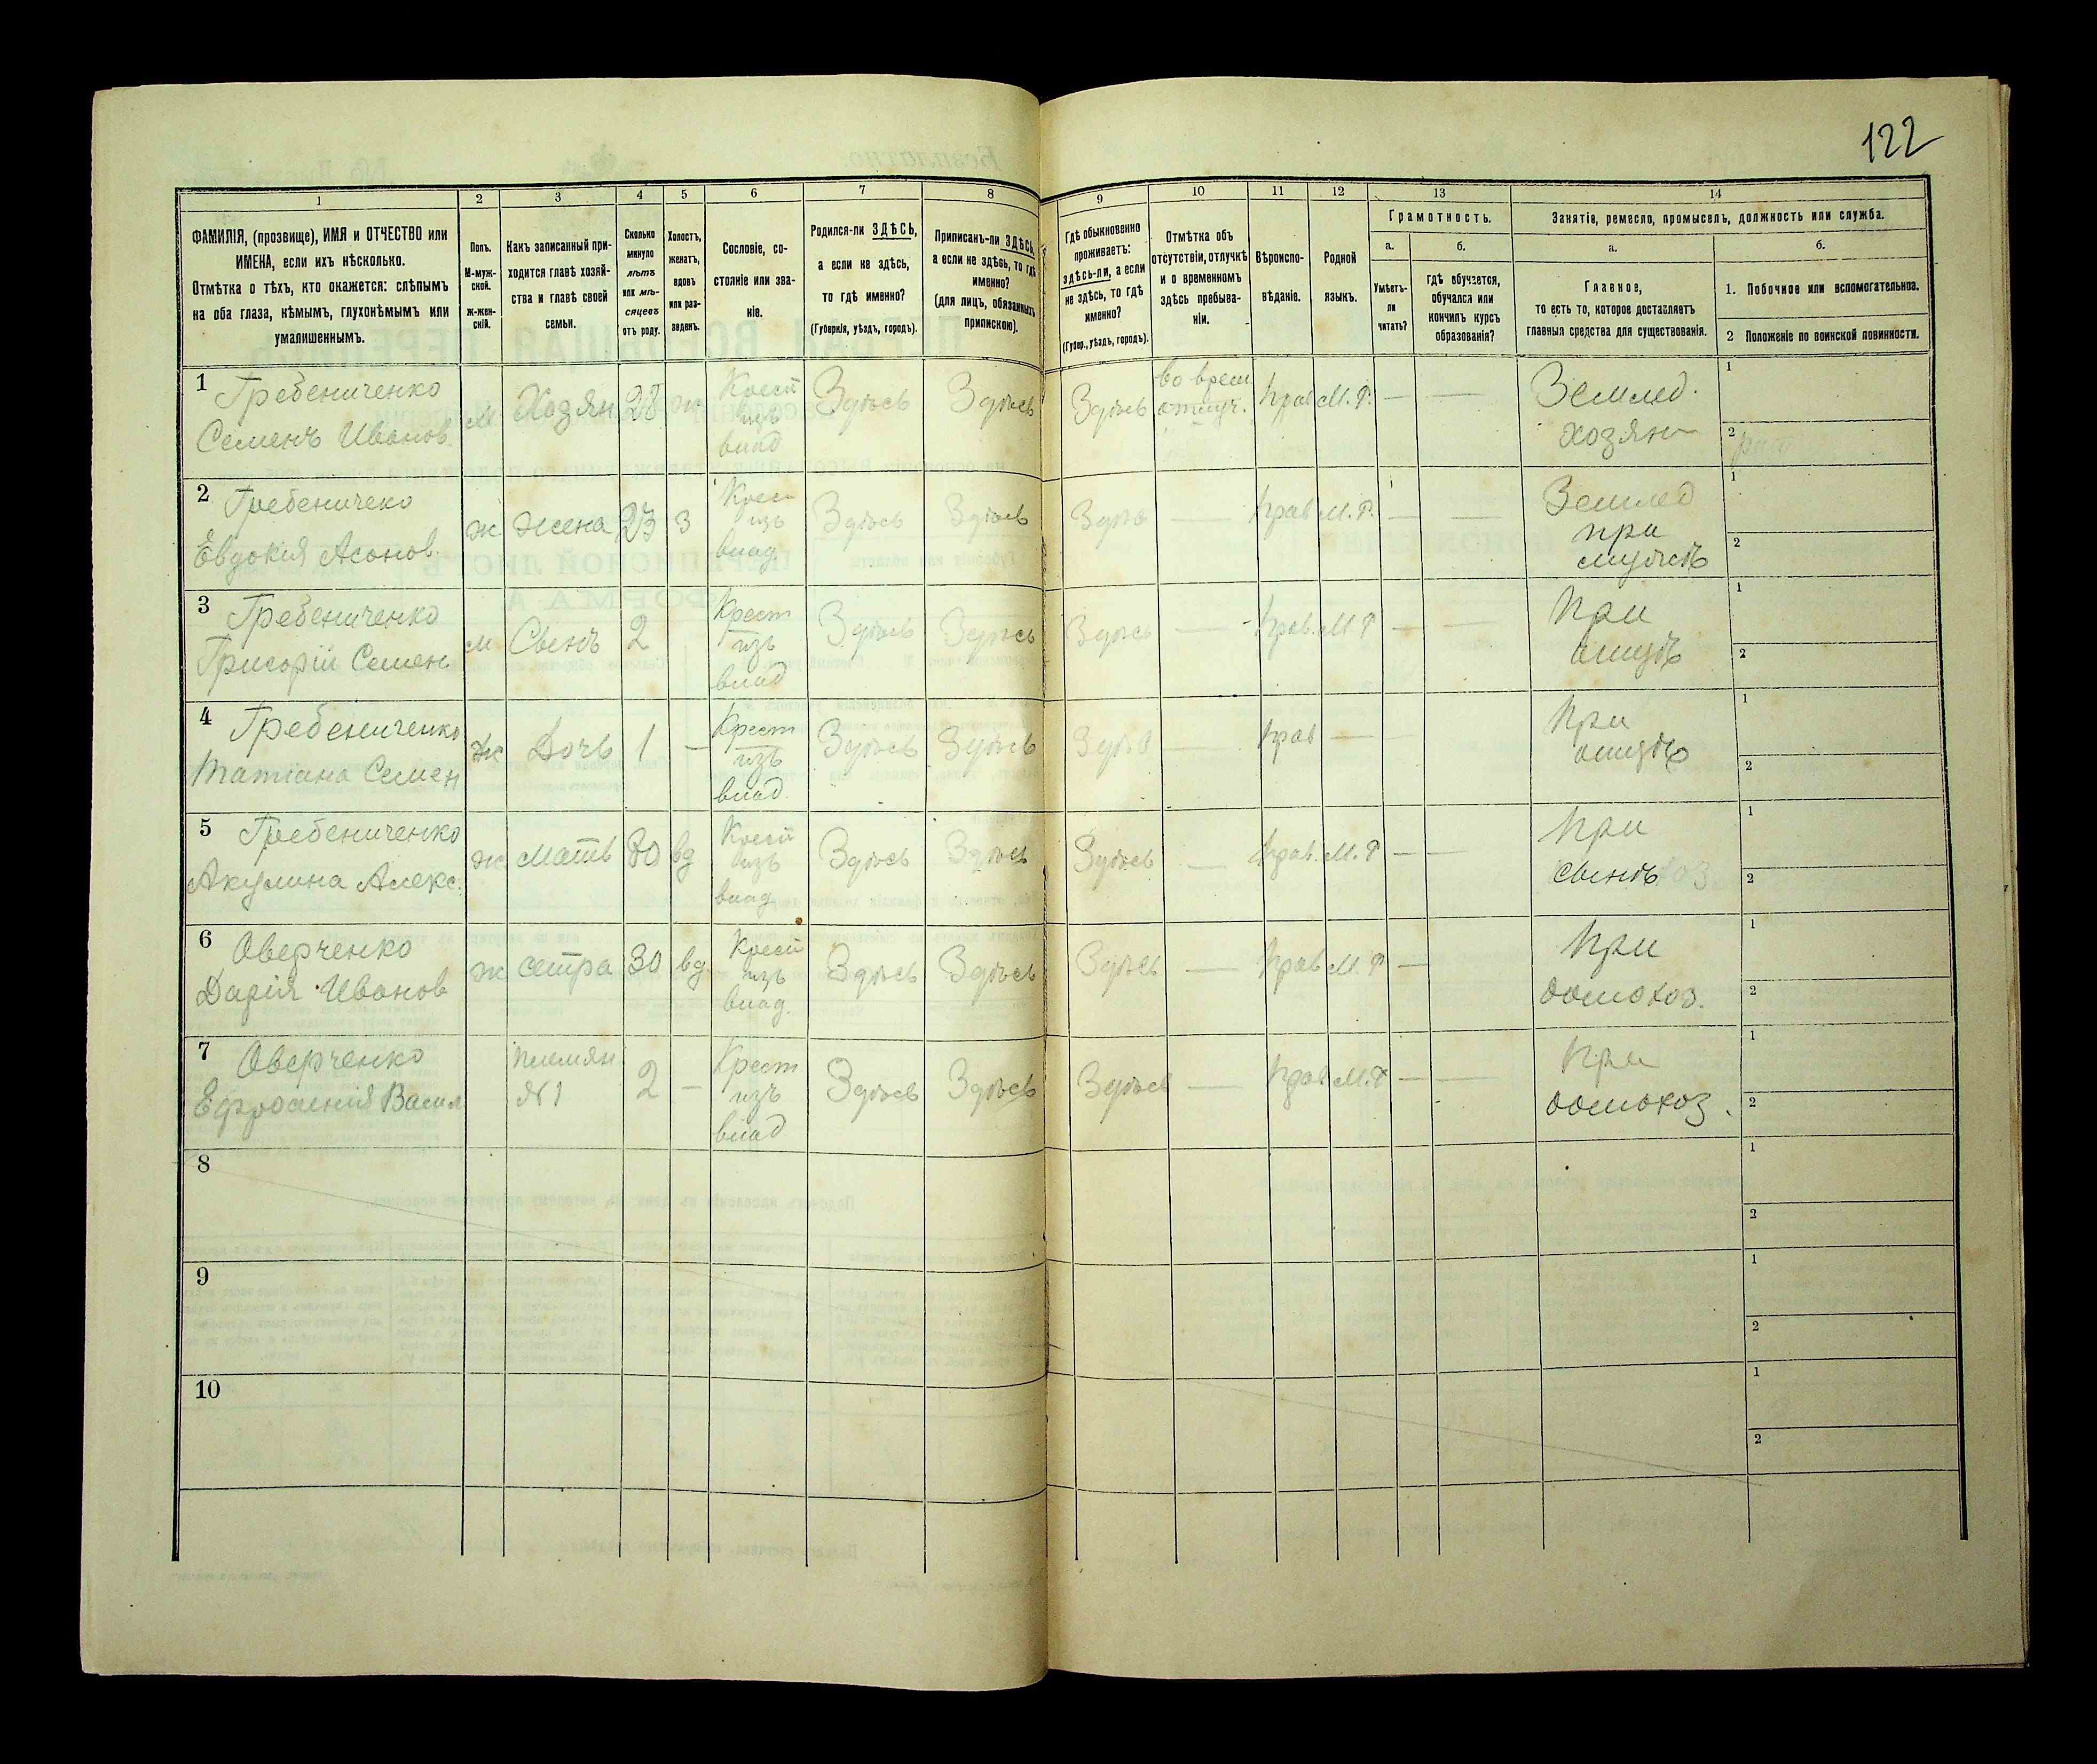 122
1
2
3
4
5
6
7
8
9
10
11
12
13
14
ФАМИЛІЯ, (прозвище), ИМЯ и ОТЧЕСТВО или
ИМЕНА, если ихъ нѣсколько.
Отмѣтка о тѣхъ, кто окажется: слѣпымъ
на оба глаза, нѣмымъ, глухонѣмымъ или
умалишеннымъ.
Полъ.
М-муж-
ской.
ж-жен-
скій.
Какъ записанный при-
ходится главѣ хозяй-
ства и главѣ своей
семьи.
Сколько
минуло
лѣтъ
или мѣ-
сяцевъ
отъ роду.
Холостъ,
женатъ,
вдовъ
или раз-
веденъ.
Сословіе, со-
стояніе или зва-
ніе.
Родился-ли ЗДѢСЬ,
а если не здѣсь,
то гдѣ именно?
(Губернія, уѣздъ, городъ).
Приписанъ-ли ЗДѢСЬ,
а если не здѣсь, то гдѣ
именно?
(для лицъ, обязанныхъ
припискою).
Гдѣ обыкновенно
проживаетъ:
здѣсь-ли, а если
не здѣсь, то гдѣ
именно?
(Губер., уѣздъ, городъ).
Отмѣтка объ
отсутствіи, отлучкѣ
и о временномъ
здѣсь пребыва-
ніи.
Вѣроиспо-
вѣданіе.
Родной
языкъ.
Грамотность.
а.
б.
Умѣетъ-
ли
читать?
Гдѣ обучается,
обучался или
кончилъ курсъ
образованія?
Занятіе, ремесло, промыселъ, должность или служба.
а.
б.
Главное,
то есть то, которое доставляетъ
главныя средства для существованія.
1. Побочное или вспомогательное.
2 Положеніе по воинской повинности.
1 Гребениченко
Семенъ Иванов.
м Хозяин 28 ж
Крест
изъ
влад
Здѣсь Здѣсь Здѣсь
во врем.
отлуч.
прав М.Р. — —
Землед.
хозяин
1
2
2 Гребеничеко
Евдокія Асонов.
ж жена 23 з
Крест
изъ
влад
Здѣсь Здѣсь Здѣсь — прав М.Р. — —
Землед
при
мужѣ
1
2
3 Гребениченко
Григорій Семен
м Сынъ 2
Крест
изъ
влад
Здѣсь Здѣсь Здѣсь — прав. М Р — —
При
отцѣ
1
2
4 Гребениченко
Татіана Семен
ж Дочь 1 —
Крест
изъ
влад.
Здѣсь Здѣсь Здѣсь — прав — —
При
отцѣ
1
2
5 Гребениченко
Акулина Алекс.
ж мать вд
Крест
изъ
влад
Здѣсь Здѣсь Здѣсь — прав. М.Р — —
При
сынѣ
1
2
6 Оверченко
Дарія Иванов
ж сетра 30 вд
Крест
изъ
влад.
Здѣсь Здѣсь Здѣсь — прав М.Р —
При
домохоз.
1
2
7 Оверченко
Ефросинія Васил
племян
№1
2 —
Крест
изъ
влад
Здѣсь Здѣсь Здѣсь — прав М.Р — —
При
домохоз.
1
2
8
1
2
9
1
2
10
1
2